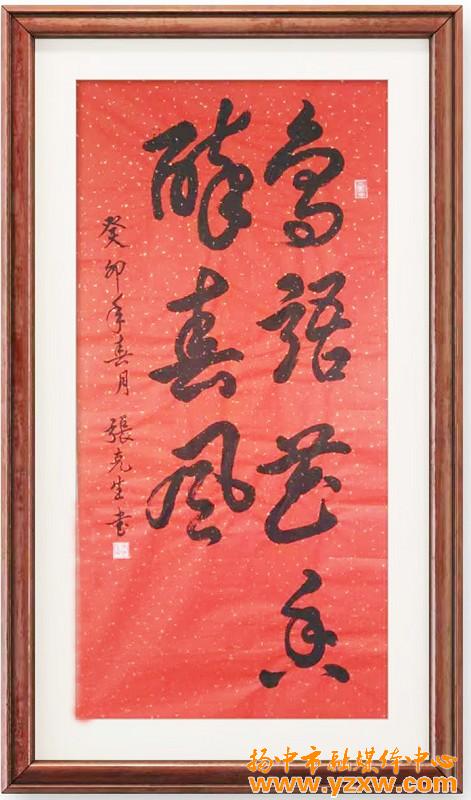 鸟语花香
醉春风
癸卯年春月 張克生书
扬中市融媒体中心
www.yzxw.com